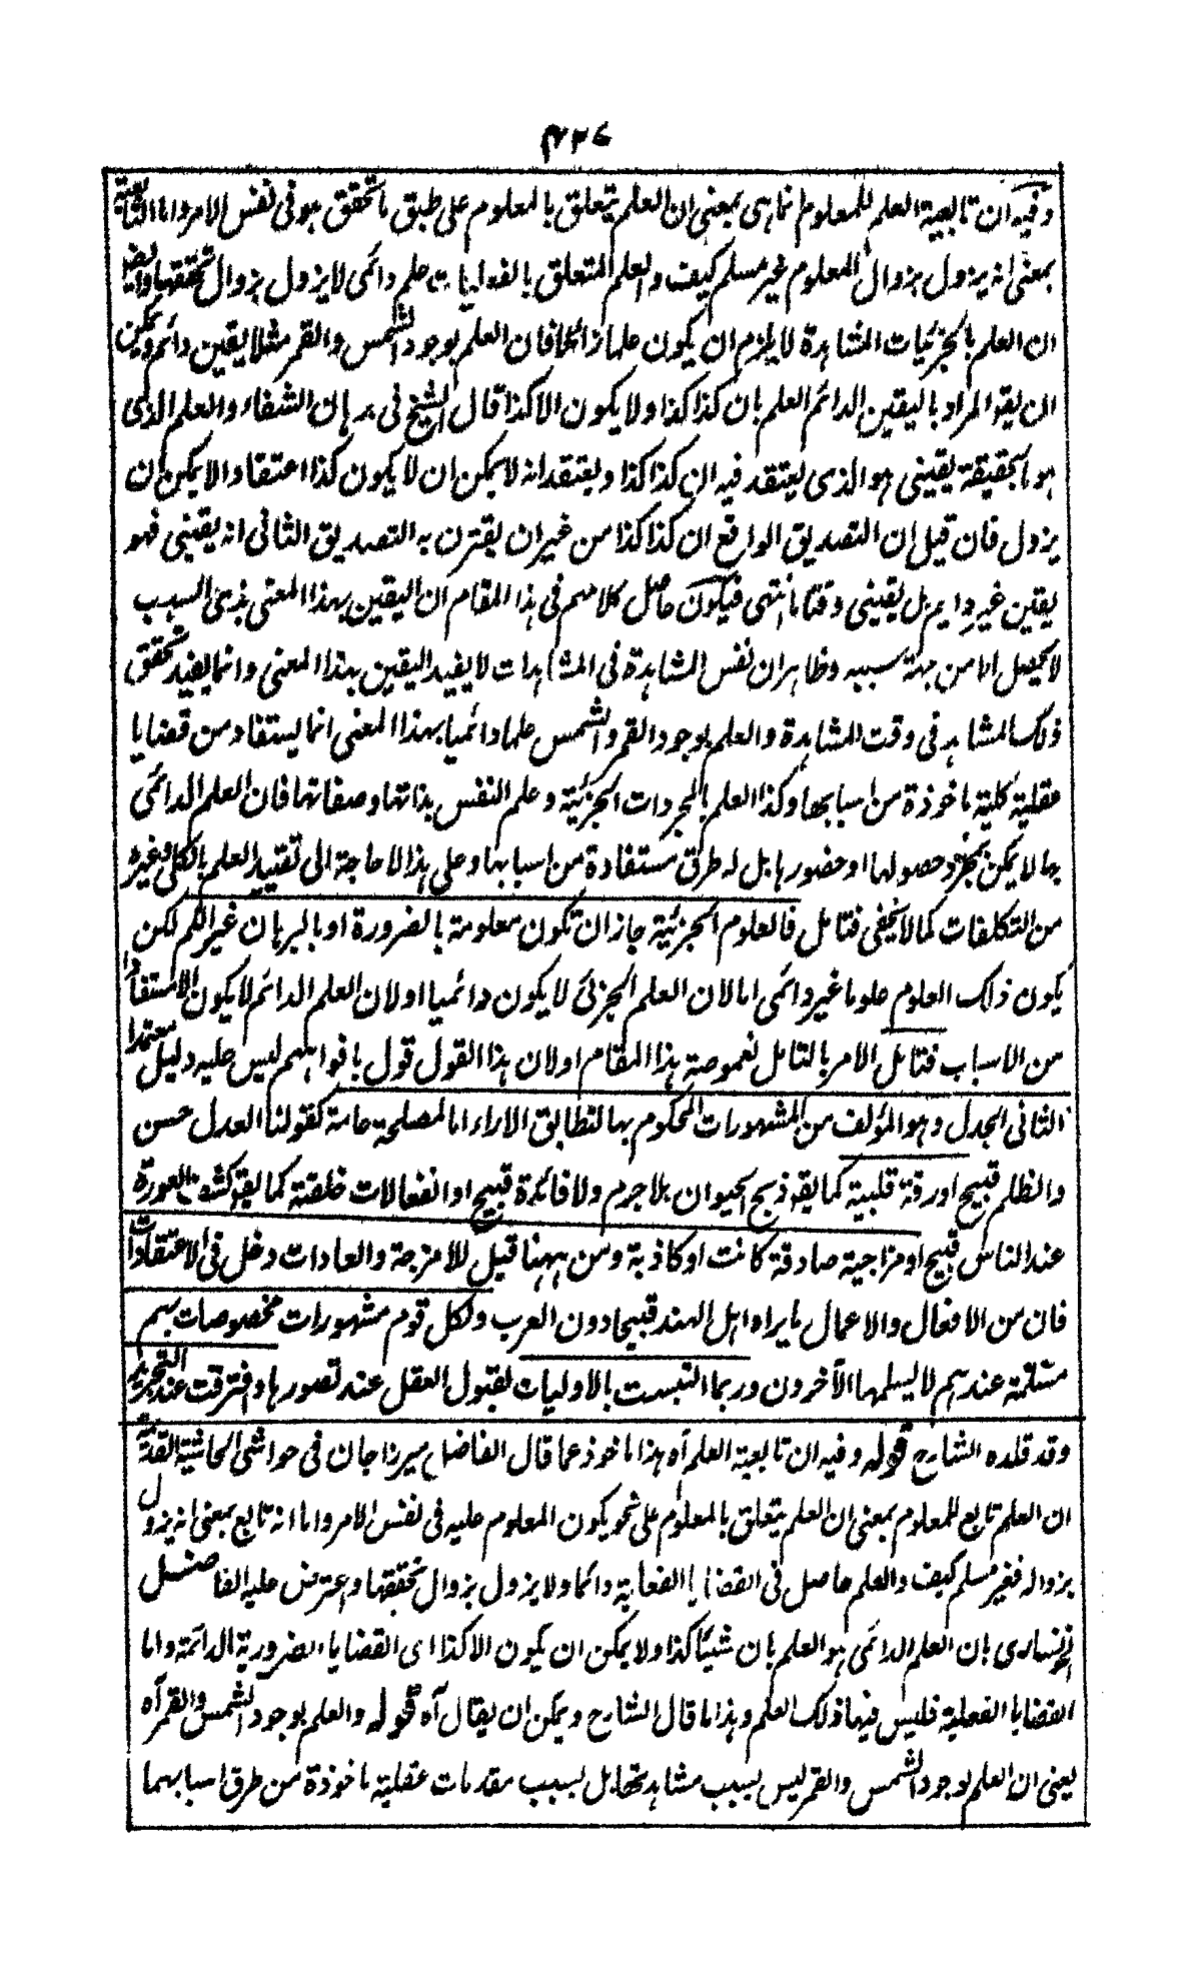 وفيه ان تابعية العلم للمعلوم انما هى بمعنى ان العلم يتعلق بالمعلوم على طبق ما تحقق هو فى نفس الامر واما التابعية
بمعنى انه يزول بزوال المعلوم غير مسلم كيف والعلم المتعلق بالفعليات علم دائمى لا يزول بزوال تحققها وايضا
ان العلم بالجزئيات المشاهدة لا يلزم ان يكون علما زائلا فان العلم بوجود الشمس والقمر مثلا يقين دائم ويمكن
ان يقو المراد باليقين الدائم العلم بان كذا كذا ولا يكون الا كذا قال الشيخ فى برهان الشفاء والعلم الذى
هو بالحقيقة يقينى هو الذى يعتقد فيه ان كذا كذا ويعتقد انه لا يمكن ان لا يكون كذا اعتقادا لا يمكن ان
يزول فان قيل ان التصديق الواقع ان كذا كذا من غير ان يقترن به التصديق الثانى انه يقينى فهو
يقين غير دايم بل يقينى وقتا ما انتهى فيكون حاصل كلامهم فى هذا المقام ان اليقين بهذا المعنى بذى السبب
لا يحصل الا من جهة سببه وظاهر ان نفس المشاهدة فى المشاهدات لا يفيد اليقين بهذا المعنى وانما يفيد تحقق
ذلك المشاهد فى وقت المشاهدة والعلم بوجود القمر والشمس علما دائميا بهذا المعنى انما يستفاد من قضايا
عقلية كلية ماخوذة من اسبابها وكذا العلم بالمجردات الجزئية وعلم النفس بذاتها وصفاتها فان العلم الدائمى
بها لا يمكن بمجرد حصولها او حضورها بل له طرق مستفادة من اسبابها وعلى هذا لا حاجة الى تقييد العلم بالكلى وغيره
من التكلفات كما لا يخفى فتامل فالعلوم الجزئية جاز ان تكون معلومة بالضرورة او بالبرهان غير اللم لكن
يكون ذلك العلوم علوما غير دائمى اما لان العلم الجزئى لا يكون دائميا او لان العلم الدائم لا يكون الا مستفادا
من الاسباب فتامل الامر بالتامل لغموصة هذا المقام او لان هذا القول قول بافواههم ليس عليه دليل معتمدا
الثانى الجدل وهو المؤلف من المشهورات المحكوم بها لتطابق الاراء اما لمصلحة عامة كقولنا العدل حسن
والظلم قبيح او رقة قلبية كما يقو ذبح الحيوان بلا جرم ولا فائدة قبيح او انفعالات خلقية كما يقو كشف العورة
عند الناس قبيح او مزاجية صادقة كانت او كاذبة ومن ههنا قيل للامزجة والعادات دخل فى الاعتقادات
فان من الافعال والاعمال ما يراه اهل الهند قبيحا دون العرب ولكل قوم مشهورات مخصوصات بهم
مسلمة عندهم لا يسلمها الآخرون وربما التبست بالاوليات لقبول العقل عند تصورها وافترقت عند التجريد
وقد قلده الشارح قوله وفيه ان تابعية العلم آه هذا ماخوذ عما قال الفاضل ميرزا جان فى حواشى الحاشية القديمة
ان العلم تابع للمعلوم بمعنى ان العلم يتعلق بالمعلوم على نحو يكون المعلوم عليه فى نفس الامر واما انه تابع بمعنى انه يزول
بزواله فغير مسلم كيف والعلم حاصل فى القضايا الفعلية دائما ولا يزول بزوال تحققها واعترض عليه الفاضل
الخونسارى بان العلم الدائمى هو العلم بان شيئا كذا ولا يمكن ان يكون الا كذا اى القضايا الضرورية الدائمة واما
القضايا الفعلية فليس فيها ذلك العلم وهذا ما قال الشارح ويمكن ان يقال آه قوله والعلم بوجود الشمس والقمر آه
يعنى ان العلم بوجود الشمس والقمر ليس بسبب مشاهدتها بل بسبب مقدمات عقلية ماخوذة من طرق اسبابهما